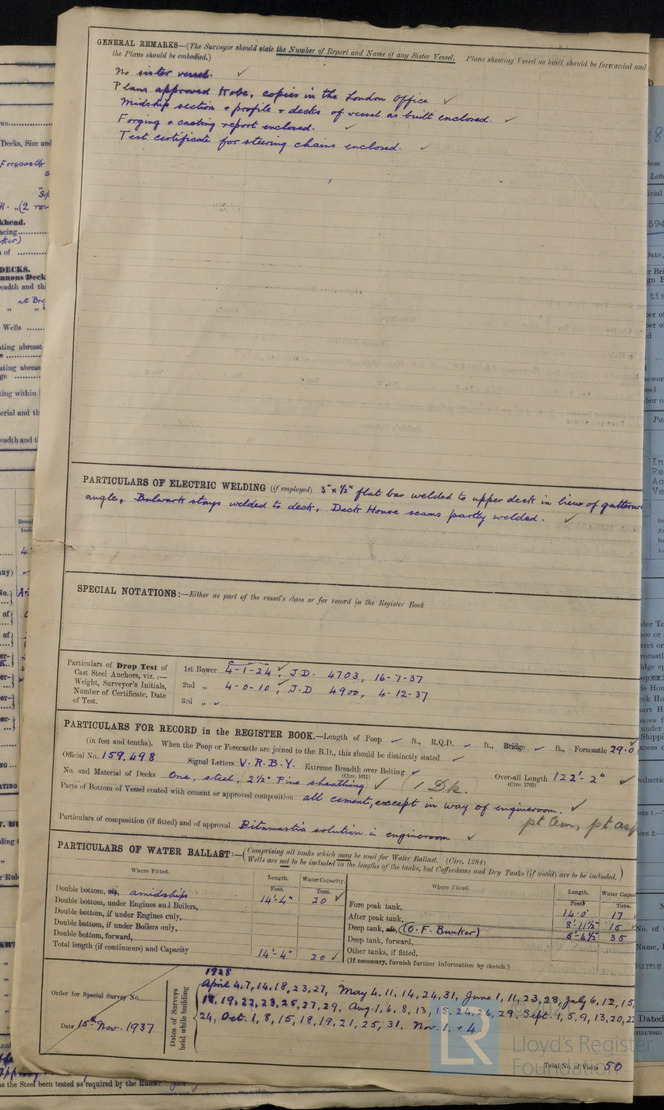 GENERAL REMARKS—(The Surveyor should state the Number of Report and Name of any Sister Vessel. Plans shewing Vessel as built should be forwarded and
the Plans should be embodied.)
No sister vessel. ✓
Plans approved Kobe, copies in the London Office ✓
Midship section + profile + decks of vessel as built enclosed ✓
Forging + casting report enclosed. ✓
Test certificate for steering chains enclosed. ✓
PARTICULARS OF ELECTRIC WELDING (if employed) 3" x 1/2" flat bar welded to upper deck in lieu of gutterway
angle, Bulwark stays welded to deck, Deck House seams partly welded. ✓
SPECIAL NOTATIONS:—Either as part of the vessel's class or for record in the Register Book
Particulars of Drop Test of
Cast Steel Anchors, viz.:—
Weight, Surveyor's Initials,
Number of Certificate, Date
of Test.
1st Bower 4-1-24 ✓ J.D. 4703, 16-7-37
2nd „ 4-0-10 ✓ J.D. 4900, 4-12-37
3rd „ ✓
PARTICULARS FOR RECORD in the REGISTER BOOK.—Length of Poop ft., R.Q.D. ft., Bridge ft., Forecastle 29.0
(in feet and tenths). When the Poop or Forecastle are joined to the B.D., this should be distinctly stated
Official No. 159,498 Signal Letters V.R.B.Y. Extreme Breadth over Belting ✓ Over-all Length 122'-2" ✓
No. and Material of Decks One, steel, 2½" Pine sheathing ✓ 1 Dk.
Parts of Bottom of Vessel coated with cement or approved composition all cement, except in way of engineroom. ✓
pt Cem, pt asp
Particulars of composition (if fitted) and of approval Bitumastic solution in engineroom ✓
PARTICULARS OF WATER BALLAST:—(Comprising all tanks which may be used for Water Ballast. (Circ. 1284)
Wells are not to be included in the lengths of the tanks, but Cofferdams and Dry Tanks (if tested) are to be included.)
Where Fitted. Length. Water Capacity
Feet. Tons.
Double bottom, amidships 14'-4" 20 ✓
Double bottom, under Engines and Boilers,
Double bottom, if under Engines only,
Double bottom, if under Boilers only,
Double bottom, forward,
Total length (if continuous) and Capacity 14'-4" 20 ✓
Where Fitted. Length. Water Capac
Feet Tons.
Fore peak tank, 14-0" 17
After peak tank, 8'-11½" 15
Deep tank, (O.F. Bunker) 5'-4½" 35
Deep tank, forward,
Other tanks, if fitted,
(If necessary, furnish further information by sketch.)
Order for Special Survey No.
Date 15th Nov. 1937
Dates of Surveys held while building
April 4, 7, 14, 18, 23, 27, May 4, 11, 14, 24, 31, June 1, 11, 23, 28, July 6, 12, 15,
18, 19, 22, 23, 25, 27, 29, Aug. 1, 6, 8, 13, 15, 24, 26, 29, Sept. 1, 5, 9, 13, 20, 22
24, Oct. 1, 8, 15, 18, 19, 21, 25, 31. Nov. 1, + 4.
Total No. of Visits 50
Lloyd's Register
Foundation